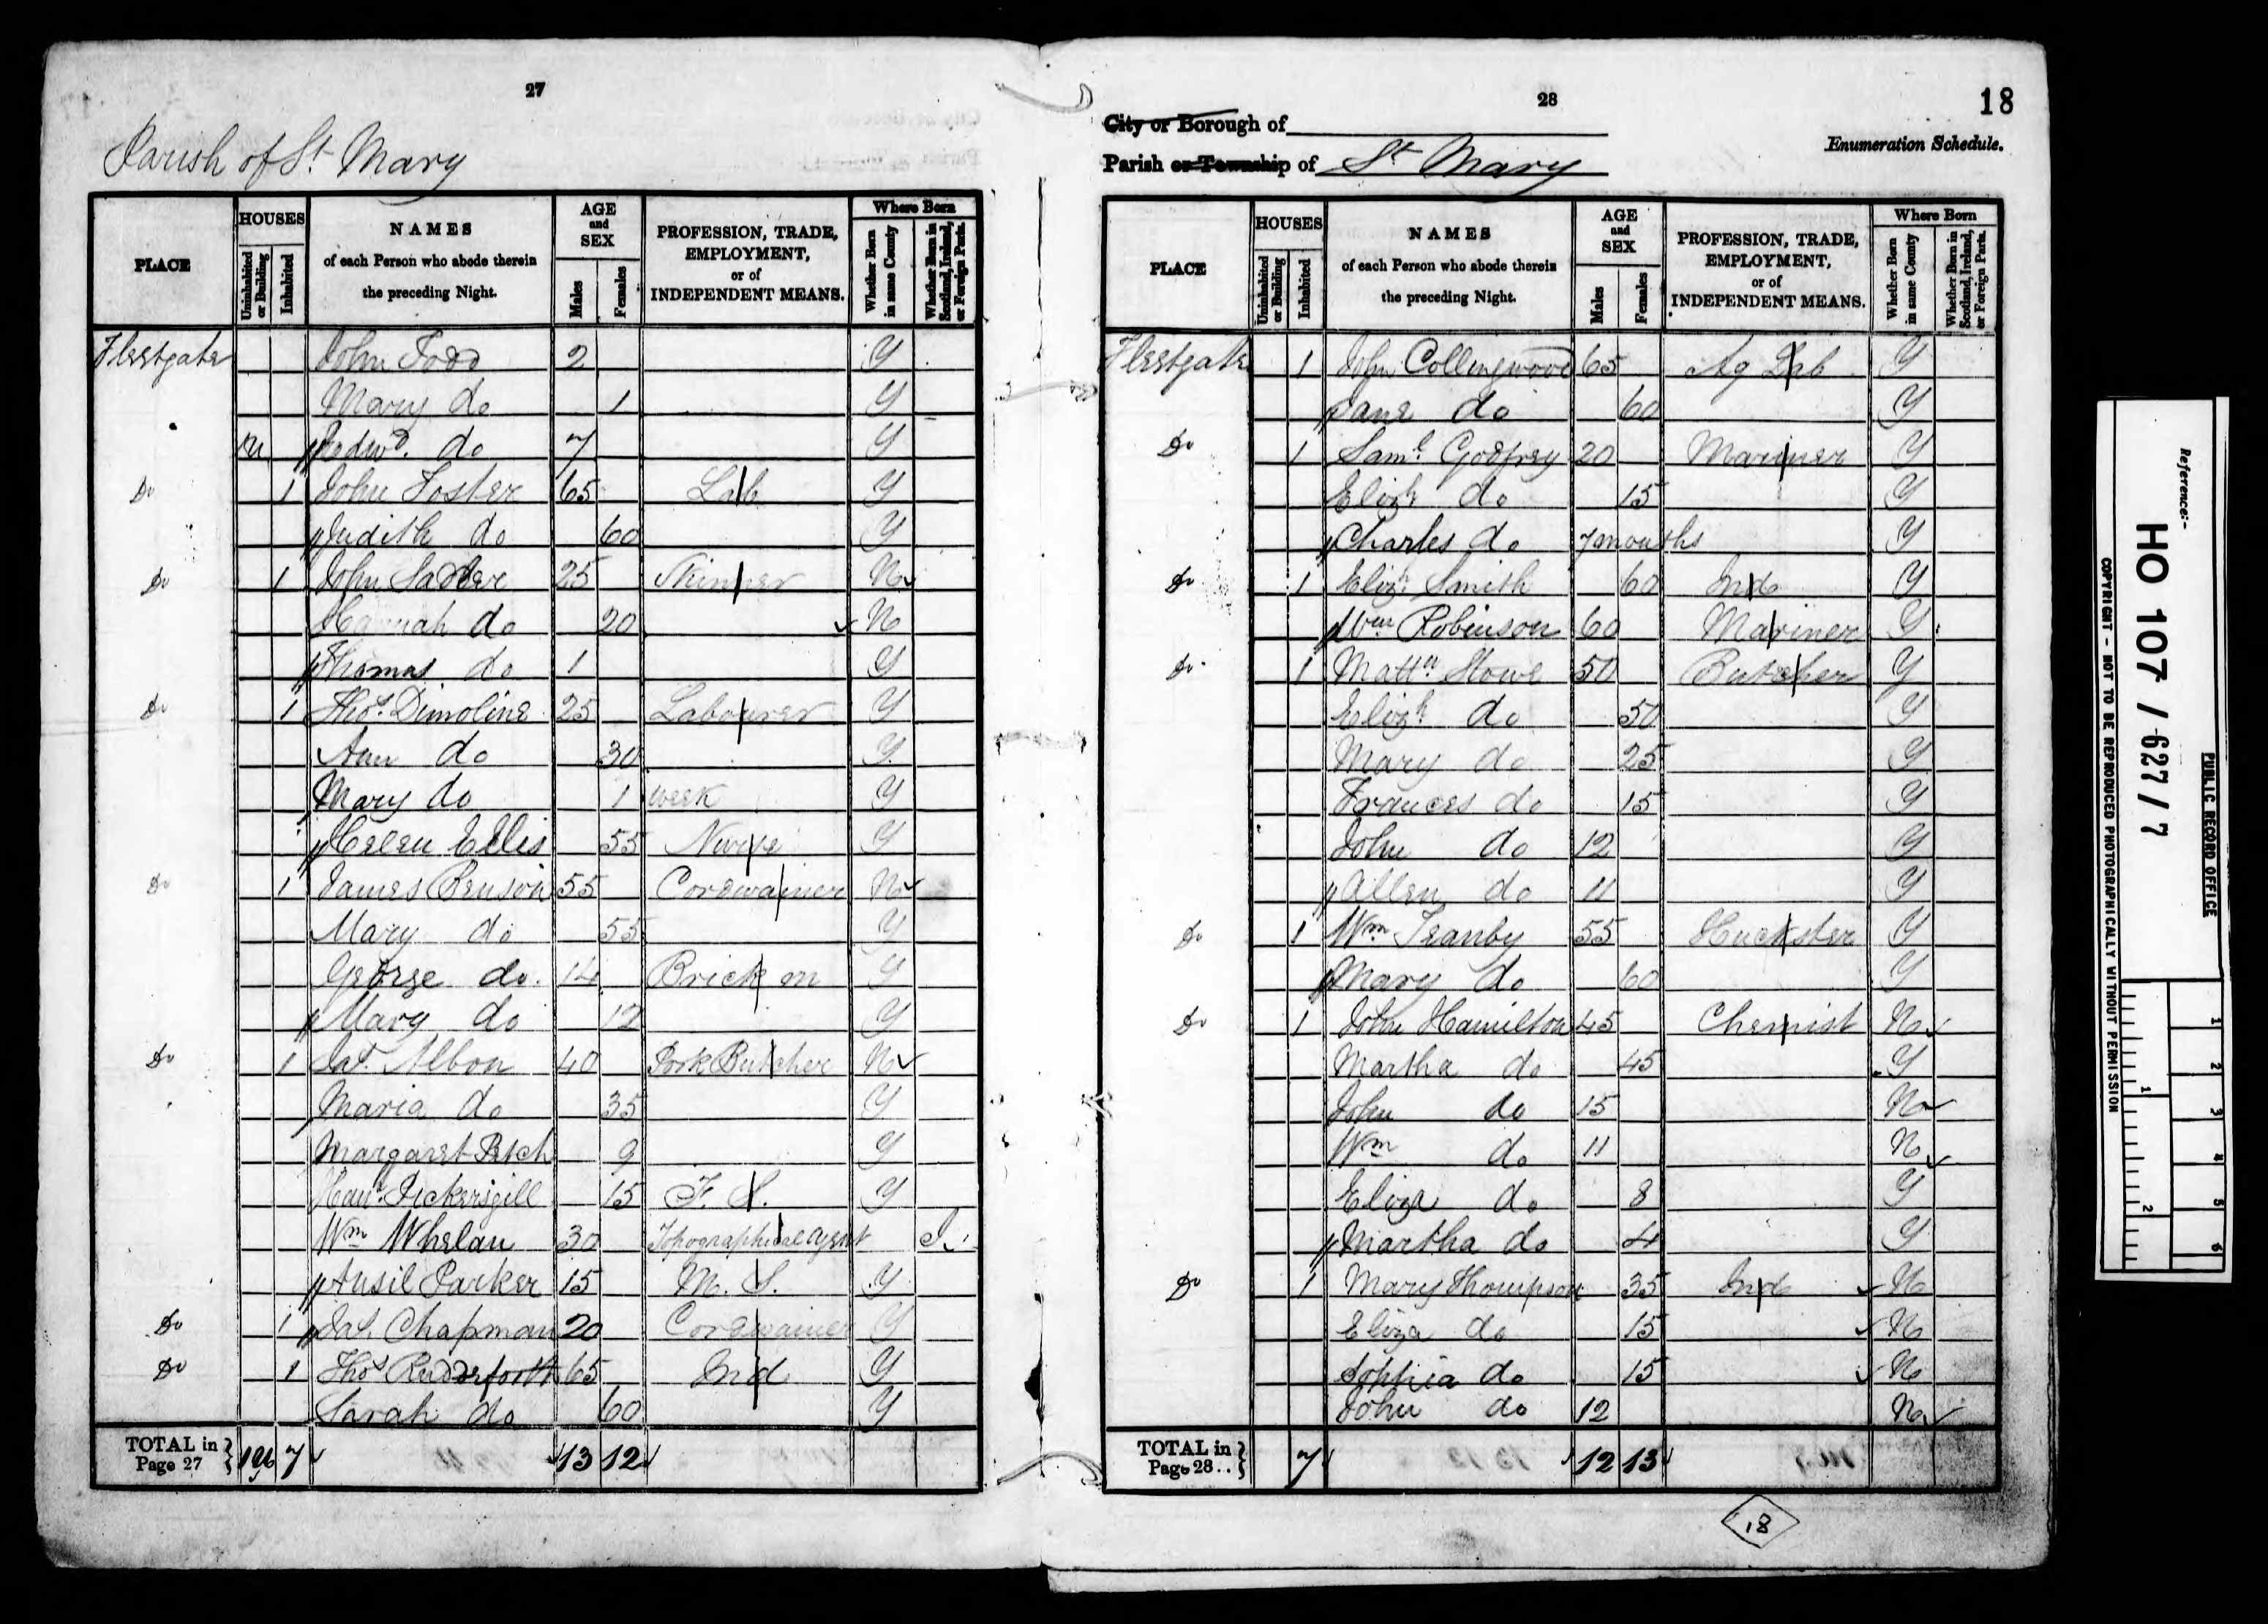 27
Parish of St. Mary
PLACE
HOUSES
Uninhabited or Building
Inhabited
NAMES of each Person who abode therein the preceding Night.
AGE and SEX
Males
Females
PROFESSION, TRADE, EMPLOYMENT, or of INDEPENDENT MEANS.
Where Born
Whether Born in same County
Whether Born in Scotland, Ireland, or Foreign Parts.
Fleetgate John Todd 2 Y
Mary do 1 Y
1u Edwd. do 7 Y
Do 1 John Foster 65 Lab Y
Judith do 60 Y
Do 1 John Sadler 25 Skinner N
Hannah do 20 N
Thomas do 1 Y
Do 1 Thos. Dimoline 25 Labourer Y
Ann do 30 Y
Mary do 1 week Y
Helen Ellis 55 Nurse Y
Do 1 James Benson 55 Cordwainer N
Mary do 55 Y
George do. 14 Brick m Y
Mary do 12 Y
Do 1 Jas. Albon 40 Pork Butcher N
Maria do 35 Y
Margaret Petch 9 Y
Hanh. Pickersgill 15 F. S. Y
Wm Whelan 30 Topographical agent I
Ansil Parker 15 M. S. Y
Do 1 Jas. Chapman 20 Cordwainer Y
Do 1 Thos Rudderforth 65 Ind Y
Sarah do 60 Y
TOTAL in Page 27 } 1u 7 13 12
28
18
City or Borough of
Enumeration Schedule.
Parish or Township of St Mary
PLACE
HOUSES
Uninhabited or Building
Inhabited
NAMES of each Person who abode therein the preceding Night.
AGE and SEX
Males
Females
PROFESSION, TRADE, EMPLOYMENT, or of INDEPENDENT MEANS.
Where Born
Whether Born in same County
Whether Born in Scotland, Ireland, or Foreign Parts.
Fleetgate 1 John Collingwood 65 Ag Lab Y
Jane do 60 Y
Do 1 Saml. Godfrey 20 Mariner Y
Elizh do 15 Y
Charles do 7 months Y
Do 1 Elizh. Smith 60 Ind Y
Wm Robinson 60 Mariner Y
Do 1 Mattw Stowe 50 Butcher Y
Elizh do 50 Y
Mary do 25 Y
Frances do 15 Y
John do 12 Y
Allen do 11 Y
Do 1 Wm Tranby 55 Huckster Y
Mary do 60 Y
Do 1 John Hamilton 45 Chemist No
Martha do 45 Y
John do 15 No
Wm do 11 No
Eliza do 8 Y
Martha do 4 Y
Do 1 Mary Thompson 35 Ind N
Eliza do 15 No
Sophia do 15 No
John do 12 No
TOTAL in Page 28.. } 7 12 13
18
Reference:-
HO 107 / 627 / 7
PUBLIC RECORD OFFICE
COPYRIGHT - NOT TO BE REPRODUCED PHOTOGRAPHICALLY WITHOUT PERMISSION
1
2
3
4
5
6
1
2